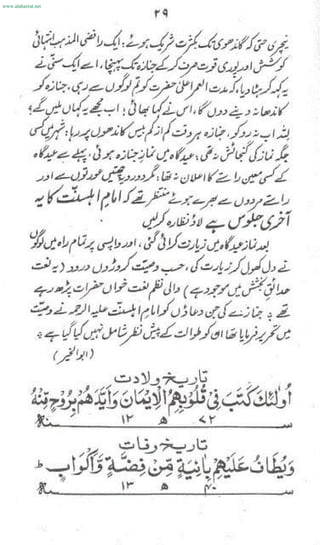 www.alahazrat.net
۲۹
نیچری حتی کہ گاندھوی تک بکثرت شریک ہوئے؛ ایک رافضی المذہب انتہائی
کوشش اور پوری قوت صرف کرکے جنازہ تک پہنچا، اسے ایک سنی نے
یہ کہہ کر ہٹا دیا کہ مدت العمر اعلیٰ حضرت کو تم لوگوں سے رہی، جنازہ کو
کاندھا نہ دینے دوں گا، اس نے کہا بھائی! اب مجھے یہ کہاں ملیں گے؟
للہ اب نہ روکو، جنازہ ہر وقت کم از کم بیس کاندھوں پر رہا؛ شہر میں کسی
جگہ نماز کی گنجائش نہ تھی، عیدگاہ میں نماز جنازہ ہوئی، پہلے سے عیدگاہ
کے کسی معین راستے کا اعلان نہ تھا؛ مگر دورویہ چھتیں عورتوں سے اور
راستے مردوں سے بھرے ہوئے منتظر تھے کہ امام اہلسنت کا یہ
آخری جلوس ہے لاؤ نظارہ کرلیں
بعد نماز عیدگاہ میں زیارت کرائی گئی، اور واپسی پر تمام راہ میں لوگوں
نے دل کھول کر زیارت کی، حسب وصیت کروڑوں درود (یہ نعت
حدائق بخشش میں موجود ہے) والی نظم نعت خواں حضرات پڑھ رہے
تھے یہ جنازے کی جن دعاؤں کو امام اہلسنت علیہ الرحمہ نے وصیت
میں تحریر فرمایا تھا ان کو طوالت کے پیش نظر شامل نہیں کیا گیا ہے
(ابو الخیر)
تاریخ ولادت
أُولٰئِكَ كَتَبَ فِي قُلُوبِهِمُ الْإِيمَانَ وَأَيَّدَهُمْ بِرُوحٍ مِّنْهُ
۷۲ ھ ۱۲ سنہ
تاریخ وفات
وَيُطَافُ عَلَيْهِمْ بِآنِيَةٍ مِّنْ فِضَّةٍ وَّأَكْوَابٍ ط
۴۰ ھ ۱۳ سنہ